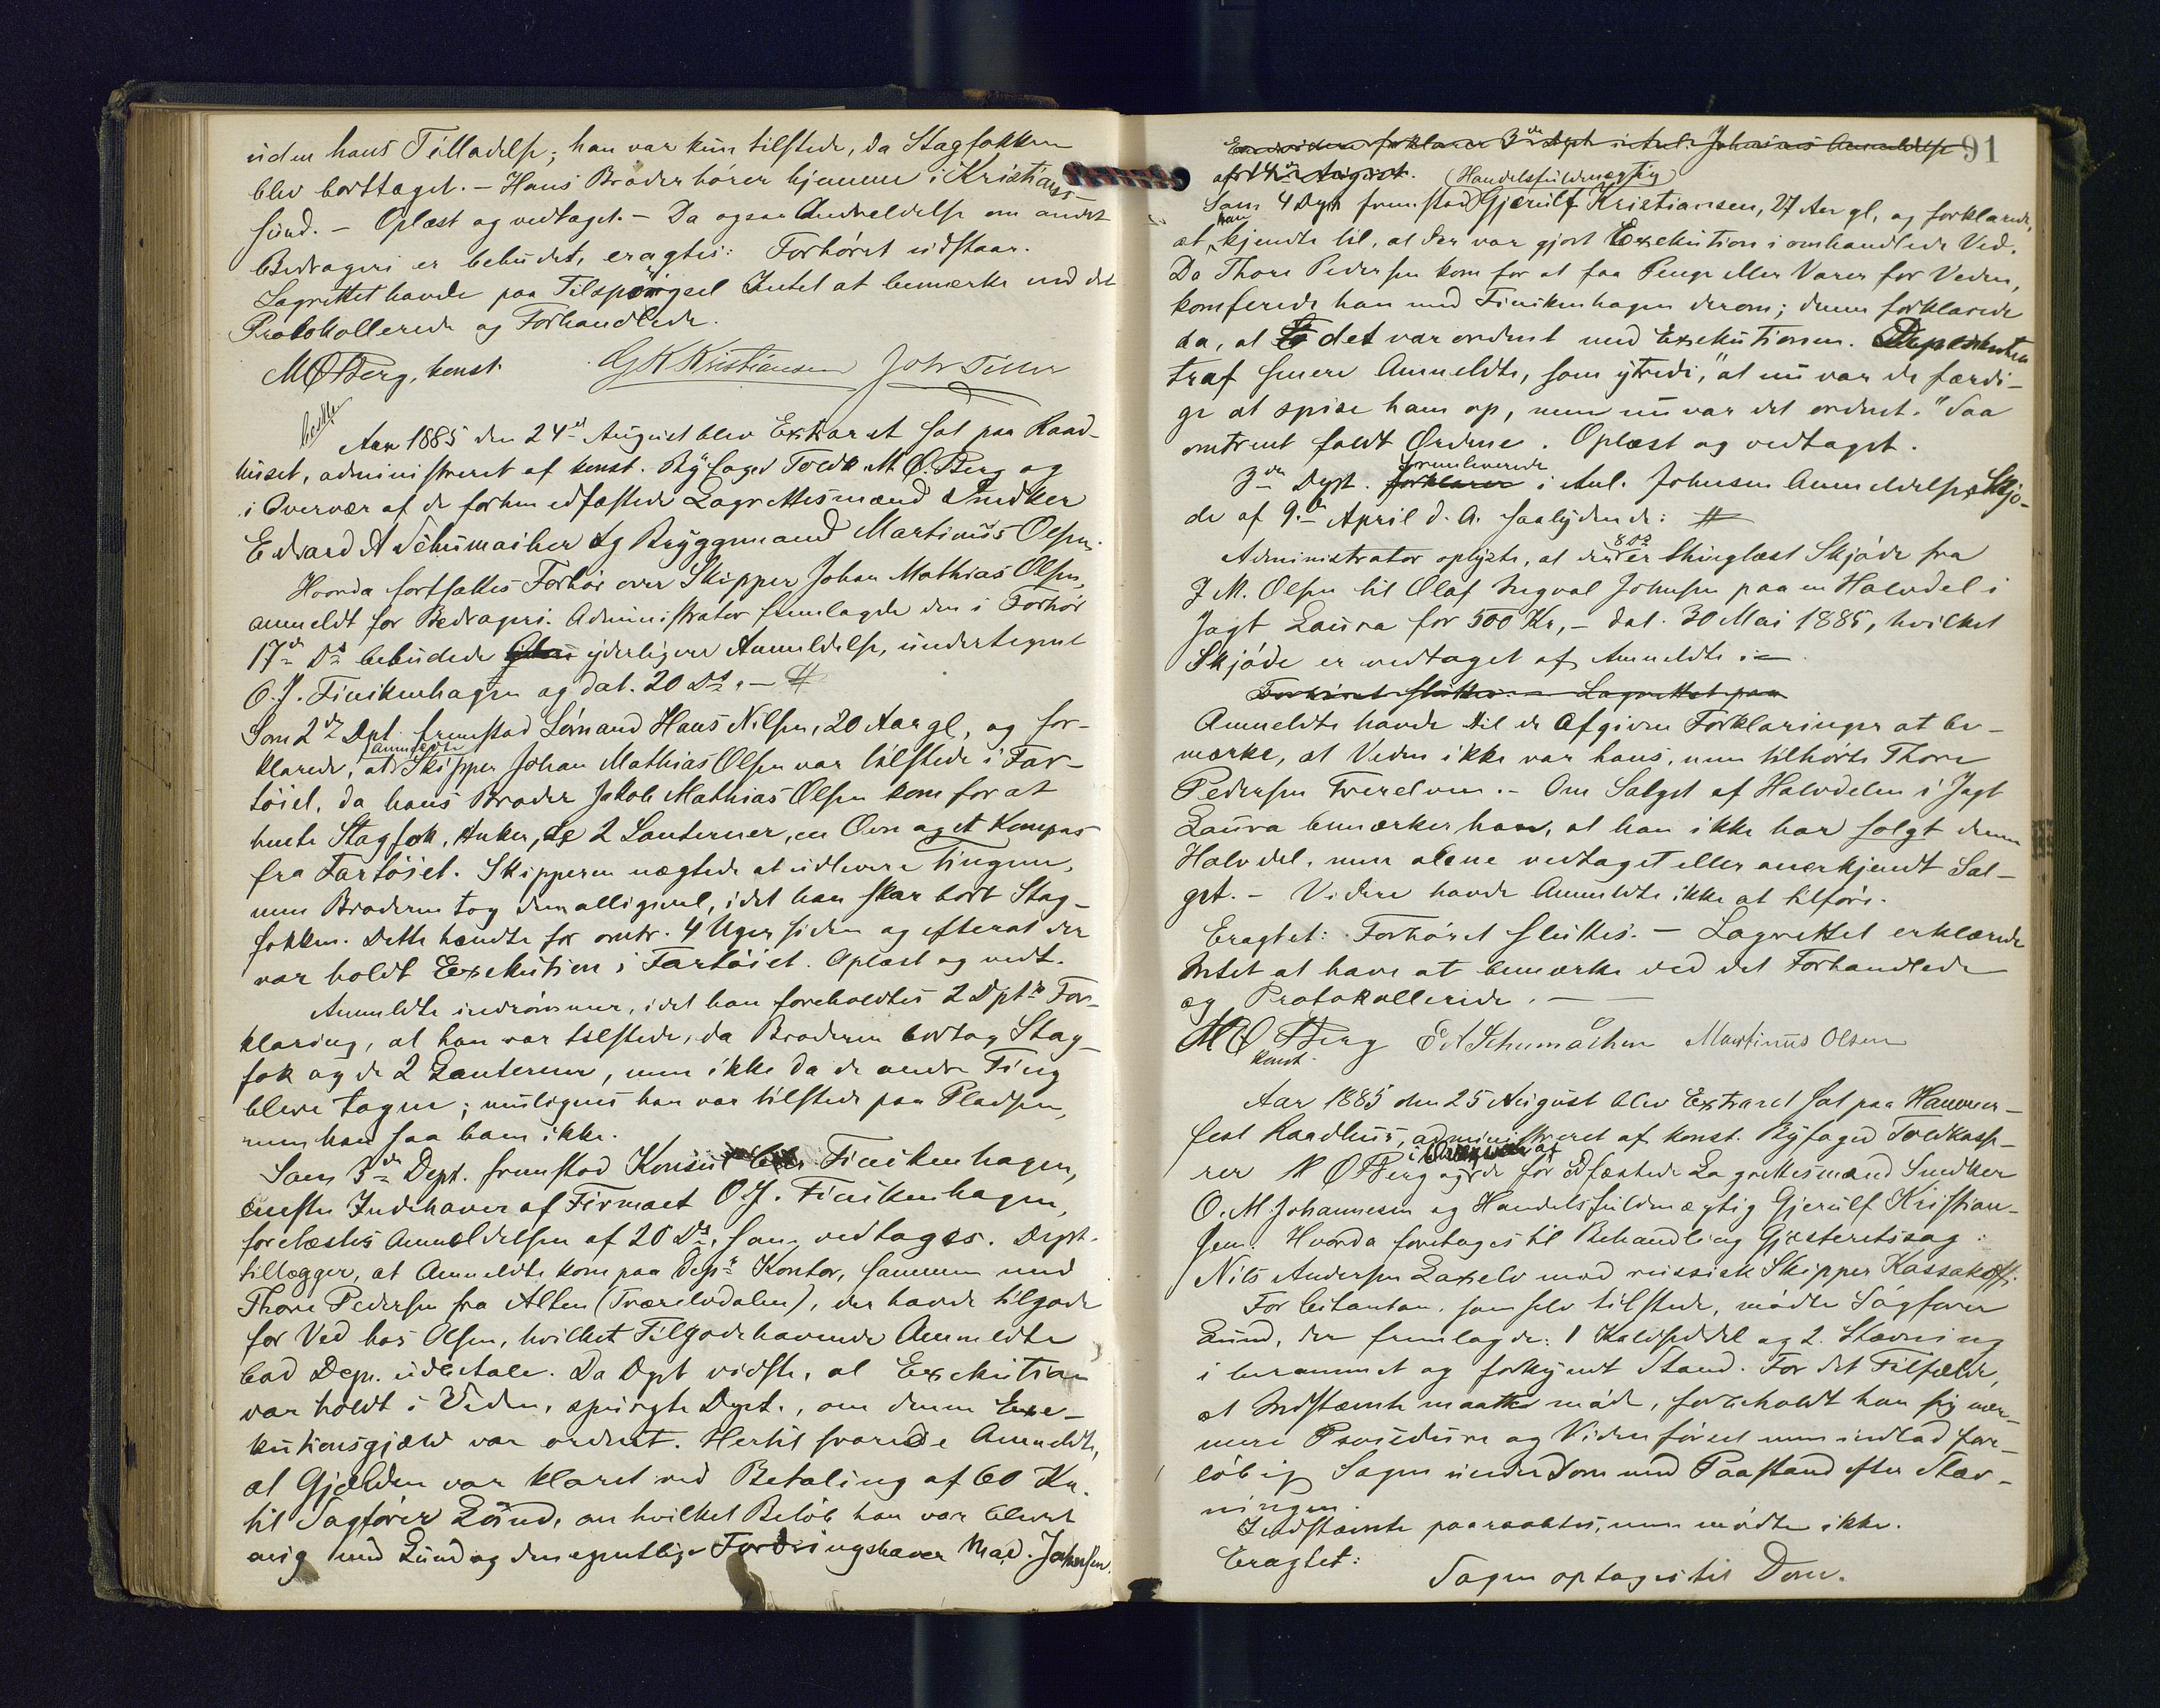 uden hans Tilladelse; han var kun tilstede, da Stagfokken
blev borttaget. – Hans Broder hører hjemme i Kristians-
sund. – Oplæst og vedtaget. – Da ogsaa Anmeldelse om andet
Bedrageri er bebudet, eragtes: Forhøret udstaar.
Lagrettet havde paa Tilspørgsel Intet at bemærke ved det
Protokollerede og Forhandlede.
M Ø Berg, konst. G K Kristiansen Joh Tiller
beskr
Aar 1885 den 24de August blev Extraret sat paa Raad-
huset, administreret af konst. Byfoged Toldk. M. Ø. Berg og
i Overvær af de forhen edfæstede Lagrettesmænd Snedker
Edvard A Schumacher og Bryggemand Martinus Olsen.
Hvorda fortsattes Forhør over Skipper Johan Mathias Olsen,
anmeldt for Bedrageri. Administrator fremlagde den i Forhør
17de Ds bebudede yderligere Anmeldelse, undertegnet
O. J. Finikenhagen og dat. 20 Ds. –
Som 2de Dpt. fremstod Sømand Hans Nilsen, 20 Aar gl, og for-
anmeldte
klarede, at Skipper Johan Mathias Olsen var tilstede i Far-
tøiet, da hans Broder Jakob Mathias Olsen kom for at
hente Stagfok, Anker, de 2 Lanterner, en Ovn og et Kompas
fra Fartøiet. Skipperen nægtede at udlevere Tingene,
men Broderen tog dem alligevel, idet han skar bort Stag-
fokken. Dette hændte for omtr. 4 Uger siden og efterat der
var holdt Exekution i Fartøiet. Oplæst og vedt.
Anmeldte indrømmer, idet han foreholdtes 2 Dpts For-
klaring, at han var tilstede, da Broderen borttog Stag-
fok og de 2 Lanterner, men ikke da de andre Ting
bleve tagne; muligens han var tilstede paa Pladsen,
men han saa ham ikke.
Som 3de Dept. fremstod Konsul Finikenhagen,
eneste Indehaver af Firmaet O. J. Finikenhagen,
forelæstes Anmeldelsen af 20 Ds, som vedtages. Dept.
tillægger, at Anmeldte kom paa Depts Kontor, sammen med
Thore Pedersen fra Alten (Tværelvdalen), der havde tilgode
for Ved hos Olsen, hvilket Tilgodehavende Anmeldte
bad Dep. udbetale. Da Dpt vidste, at Exekution
var holdt i Veden, spurgte Dpt., om denne Exe-
kutionsgjæld var ordnet. Hertil svarede Anmeldte,
at Gjælden var klaret ved Betaling af 60 Kr.
til Sagfører Lund, om hvilket Beløb han var blevet
enig med Lund og den egentlige Fordringshaver Mad. Johnsen.
91
Endvidere forklarer 3de Dpt i Anl. Johnsens Anmeldelse
af 14de August. (Handelsfuldmægtig)
Som 4 Dpt fremstod Gjerulf Kristiansen, 27 Aar gl, og forklarede,
han
at kjendte til, at der var gjort Exekution i omhandlede Ved.
Da Thore Pedersen kom for at faa Penge eller Varer for Veden,
konfererede han med Finikenhagen derom; denne forklarede
da, at det var ordnet med Exekutionen. Deponenten
traf senere Anmeldte, som ytrede, "at nu var de færdi-
ge at spise ham op, men nu var det ordnet." Saa
omtrent faldt Ordene. Oplæst og vedtaget.
fremleverede
3de Dept. forklarer i Anl. Johnsens Anmeldelse, Skjø-
de af 9de April d. A. saalydende:
Administrator oplyste, at der er thinglæst Skjøde fra
J M. Olsen til Olaf Ingval Johnsen paa en Halvdel i
Jagt Laura for 500 Kr, – dat. 30 Mai 1885, hvilket
Skjøde er vedtaget af Anmeldte. –
Forhøret sluttes. – Lagrettet paa
Anmeldte havde til de afgivne Forklaringer at be-
mærke, at Veden ikke var hans, men tilhørte Thore
Pedersen Tverelven. – Om Salget af Halvdelen i Jagt
Laura bemærker han, at han ikke har solgt denne
Halvdel, men alene vedtaget eller anerkjendt Sal-
get. – Videre havde Anmeldte ikke at tilføre.
Eragtet: Forhøret sluttes. – Lagrettet erklærede
Intet at have at bemærke ved det Forhandlede
og Protokollerede. –
M Ø Berg E A Schumacher Martinus Olsen
konst.
Aar 1885 den 25 August blev Extraret sat paa Hammer-
fest Raadhus, administreret af konst. Byfoged Toldkasse-
i Overvær af
rer M Ø Berg og de før Edfæstede Lagrettesmænd Snedker
O. M. Johannesen og Handelsfuldmægtig Gjerulf Kristian-
sen. Hvorda foretages til Behandling Gjæsteretssag:
Nils Andersen Laxelv mod russisk Skipper Kassakoff.
For Citanten, som selv tilstede, mødte Sagfører
Lund, der fremlagde: 1 Kaldseddel og 2. Stævning
i berammet og forkyndt Stand. For det Tilfælde,
at Indstævnte maatte møde, forbeholdt han sig nær-
mere Procedure og Vidneførsel men indlod fore-
løbig Sagen under Dom med Paastand efter Stæv-
ningen.
Indstævnte paaraabtes, men mødte ikke.
Eragtet:
Sagen optages til Dom.